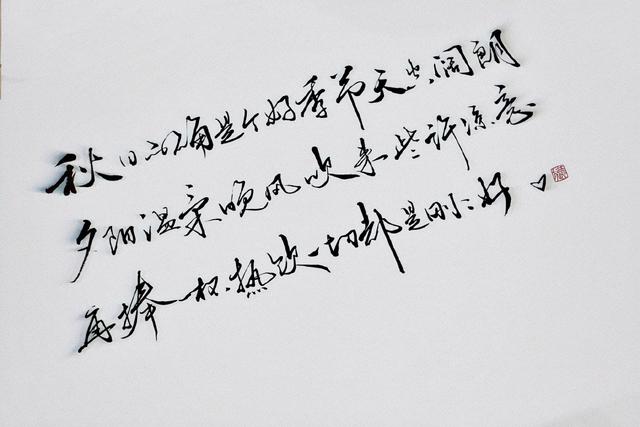 秋日的确是个好季节天空阔朗
夕阳温柔晚风吹来一些许凉意
再捧一杯热饮一切都是刚刚好